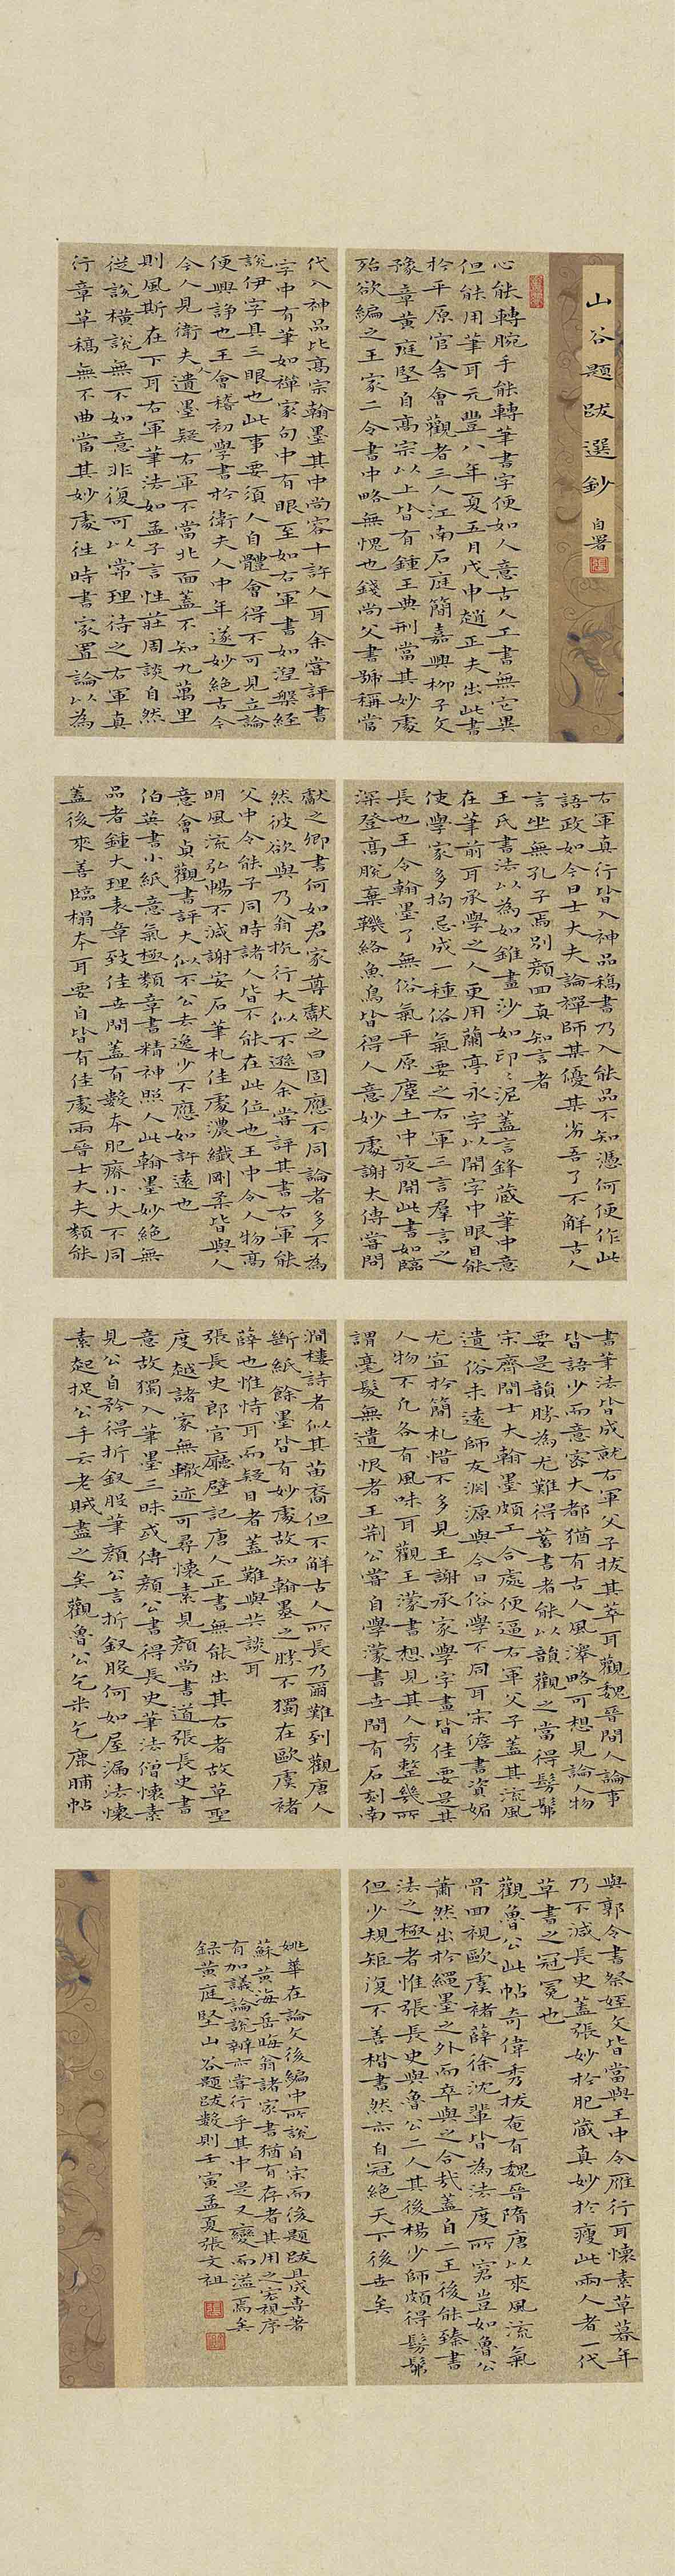 山谷題跋選鈔 自署
心能轉腕手能轉筆書字便如人意古人工書無它異
但能用筆耳元豐八年夏五月戊申趙正夫出此書
於平原官舍會觀者三人江南石庭簡嘉興柳子文
豫章黃庭堅自高宗以上皆有鍾王典刑當其妙處
殆欲編之王家二令書中略無愧也錢尚父書號稱當
代入神品比高宗翰墨其中尚容十許人耳余嘗評書
字中有筆如禪家句中有眼至如右軍書如涅槃經
說伊字具三眼也此事要須人自體會得不可見立論
便興諍也王會稽初學書於衛夫人中年遂妙絕古今
今人見衛夫人遺墨疑右軍不當北面蓋不知九萬里
則風斯在下耳右軍筆法如孟子言性莊周談自然
從說橫說無不如意非復可以常理待之右軍真
行章草藁無不曲當其妙處往時書家置論以為
右軍真行皆入神品藁書乃入能品不知憑何便作此
語政如今日士大夫論禪師某優某劣吾了不解古人
言坐無孔子焉別顏回真知言者
王氏書法以為如錐畫沙如印印泥蓋言鋒藏筆中意
在筆前耳承學之人更用蘭亭永字以開字中眼目能
使學家多拘忌成一種俗氣要之右軍二言群言之
長也王令翰墨了無俗氣平原塵土中夜開此書如臨
深登高脫棄轡絡魚鳥皆得人意妙處謝太傅嘗問
獻之卿書何如君家尊獻之曰固應不同論者多不為
然彼欲與乃翁抗行大似不遜余嘗評其書右軍能
父中令能子同時諸人皆不能在此位也王中令人物高
明風流弘暢不減謝安石筆札佳處濃纖剛柔皆與人
意會貞觀書評大似不公去逸少不應如許遠也
伯英書小紙意氣極類章書精神照人此翰墨妙絕無
品者鍾大理表章致佳世間蓋有數本肥瘠小大不同
蓋後來善臨榻本耳要自皆有佳處兩晉士大夫類能
書筆法皆成就右軍父子拔其萃耳觀魏晉間人論事
皆語少而意密大都猶有古人風澤略可想見論人物
要是韻勝為尤難得蓄書者能以韻觀之當得髣髴
宋齊間士大翰墨頗工合處便逼右軍父子蓋其流風
遺俗未遠師友淵源與今日俗學不同耳宋儋書資媚
尤宜於簡札惜不多見王謝承家學字畫皆佳要是其
人物不凡各有風味耳觀王濛書想見其人秀整幾所
謂毫髮無遺恨者王荊公嘗自學濛書世間有石刻南
澗樓詩者似其苗裔但不解古人所長乃爾難到觀唐人
斷紙餘墨皆有妙處故知翰墨之勝不獨在歐虞褚
薛也惟恃耳而疑目者蓋難與共談耳
張長史郎官廳壁記唐人正書無能出其右者故草聖
度越諸家無轍迹可尋懷素見顏尚書道張長史書
意故獨入筆墨三昧或傳顏公書得長史筆法僧懷素
見公自矜得折釵股筆顏公言折釵股何如屋漏法懷
素起捉公手云老賊盡之矣觀魯公乞米乞鹿脯帖
與郭令書祭姪文皆當與王中令雁行耳懷素草暮年
乃不減長史蓋張妙於肥藏真妙於瘦此兩人者一代
草書之冠冕也
觀魯公此帖奇偉秀拔奄有魏晉隋唐以來風流氣
骨回視歐虞褚薛徐沈輩皆為法度所窘豈如魯公
蕭然出於繩墨之外而卒與之合哉蓋自二王後能臻書
法之極者惟張長史與魯公二人其後楊少師頗得髣髴
但少規矩復不善楷書然亦自冠絕天下後世矣
姚華在論文後編中所說自宋而後題跋且成專著
蘇黃海岳晦翁諸家書猶有存者其用之宏視序
有加議論說辨亦嘗行乎其中是又變而溢焉矣
錄黃庭堅山谷題跋數則壬寅孟夏張文祖